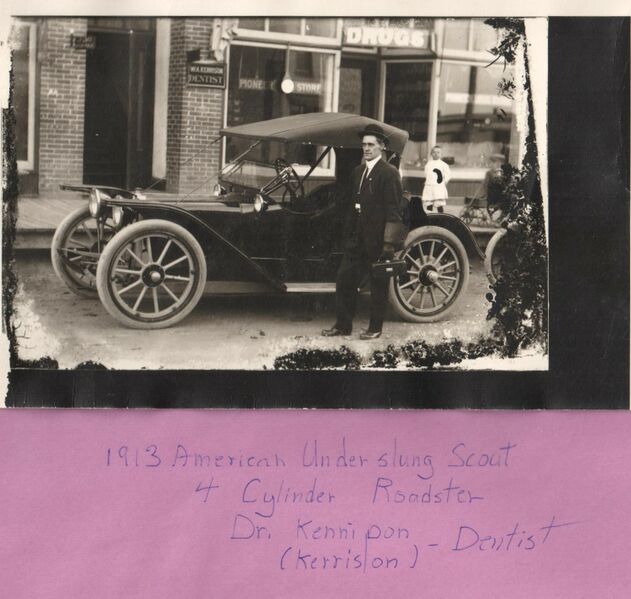 DRUGS
W.A. KERRISON
DENTIST
PIONEER STORE
1913 American Underslung Scout
4 Cylinder Roadster
Dr. Kennipon
(Kerriston) - Dentist